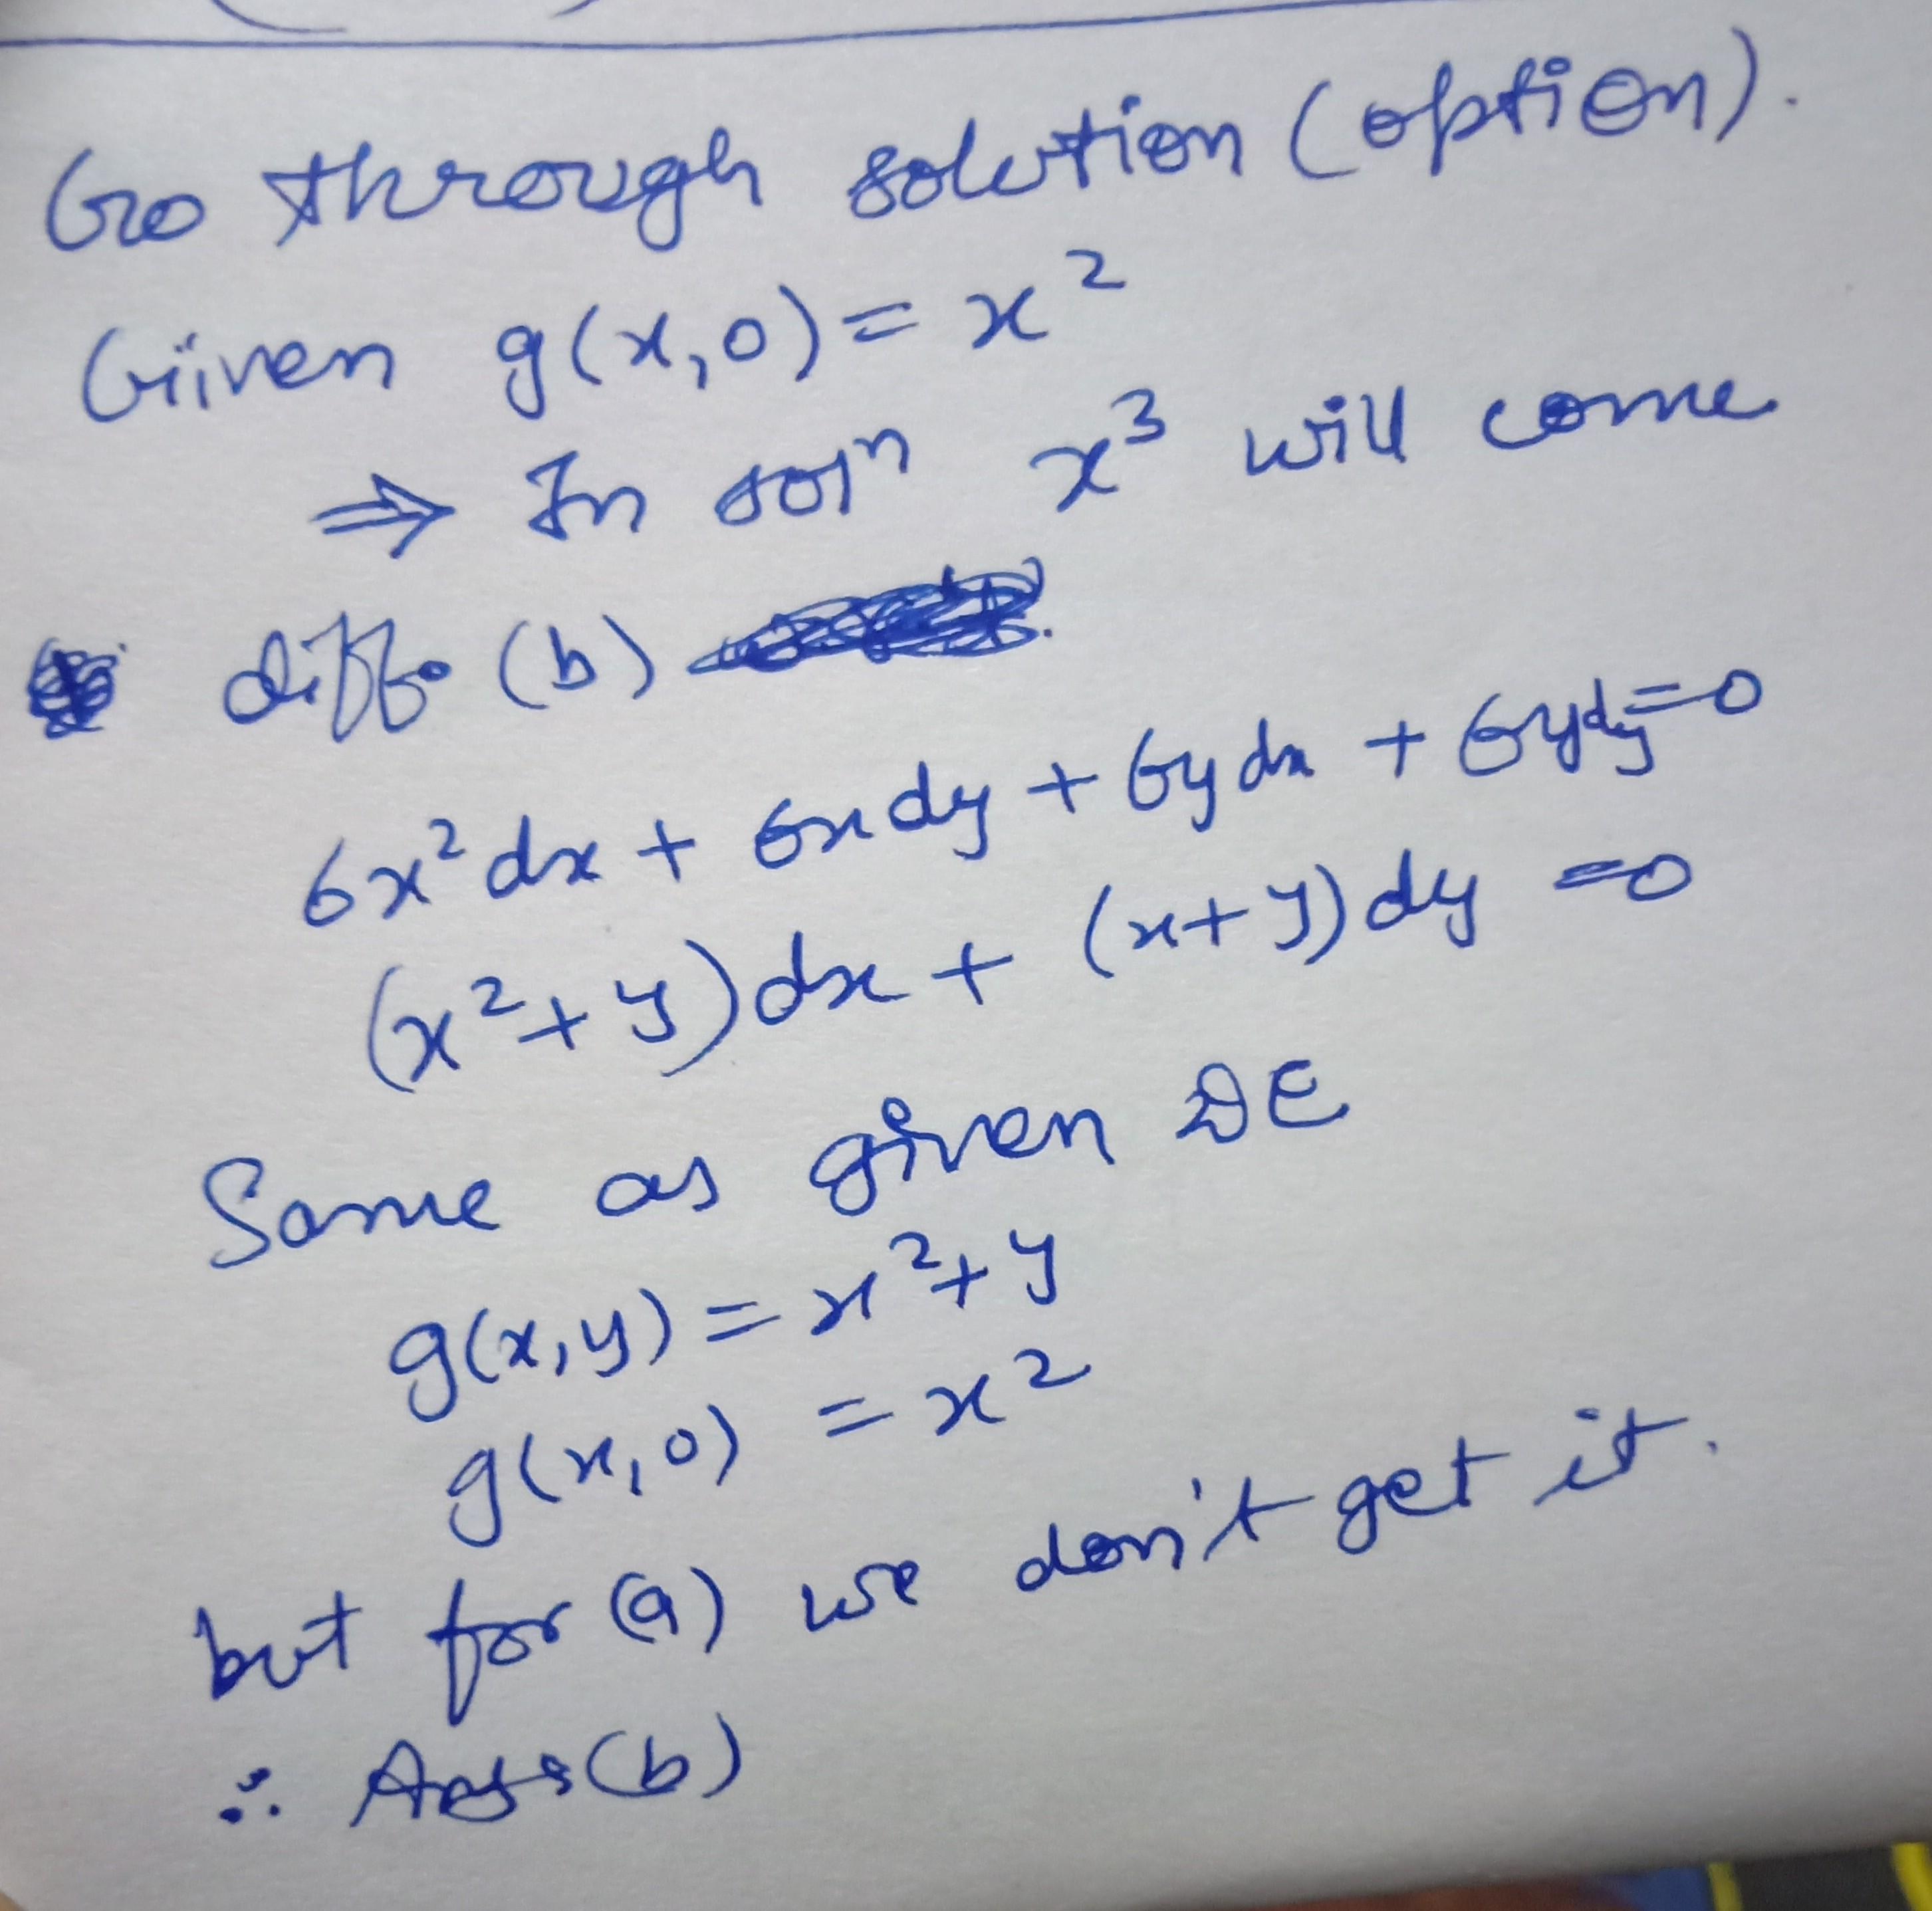 Go through solution (option).
Given g(x,0) = x²
⇒ In solⁿ x³ will come
diff. (b)
6x² dx + 6x dy + 6y dx + 6y dy = 0
(x² + y) dx + (x + y) dy = 0
Same as given DE
g(x,y) = x² + y
g(x,0) = x²
but for (a) we don't get it.
∴ Ans (b)